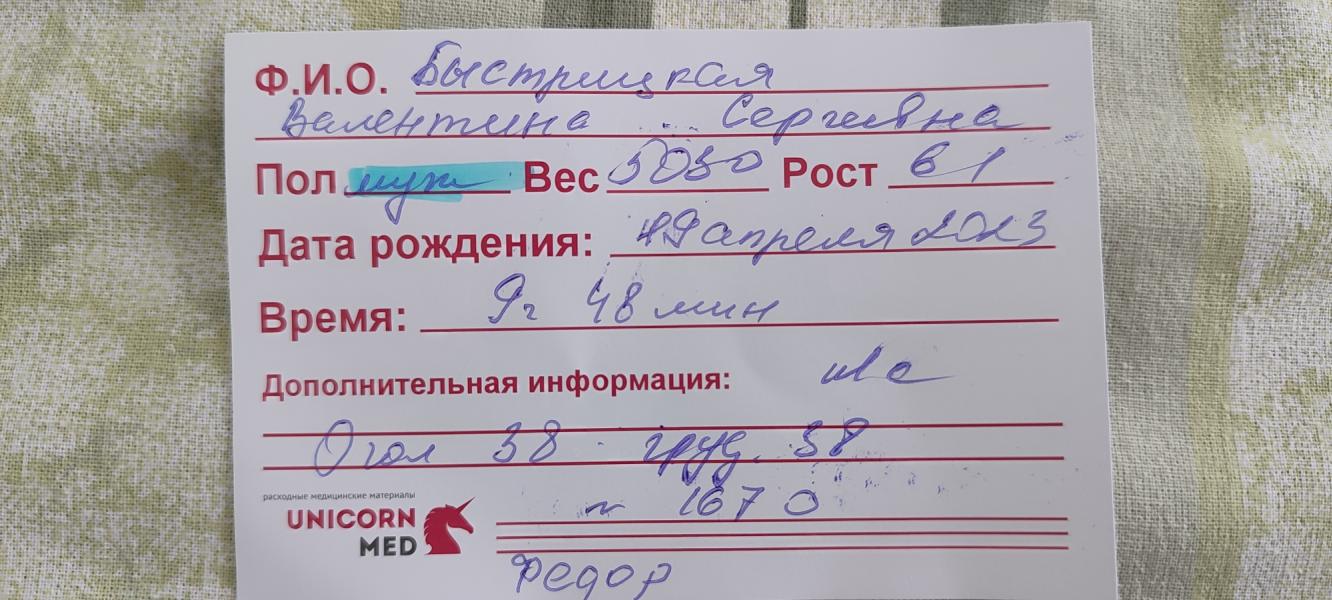 Ф.И.О. Быстрицкая
Валентина Сергеевна
Пол муж Вес 5030 Рост 61
Дата рождения: 19 апреля 2023
Время: 9г 48 мин
Дополнительная информация:
Огол 38 груд. 38
№ 1670
расходные медицинские материалы
UNICORN
MED
Федор